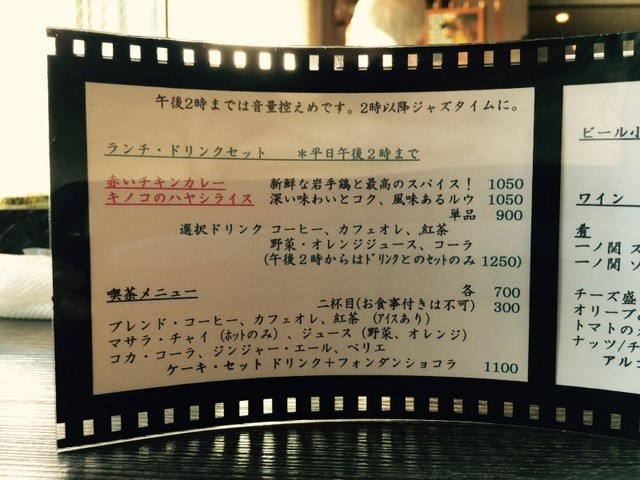 午後2時までは音量控えめです。2時以降ジャズタイムに。
ランチ・ドリンクセット ＊平日午後２時まで
赤いチキンカレー 新鮮な岩手鶏と最高のスパイス！ 1050
キノコのハヤシライス 深い味わいとコク、風味あるルウ 1050
単品 900
選択ドリンク コーヒー、カフェオレ、紅茶
野菜・オレンジジュース、コーラ
(午後２時からはﾄﾞﾘﾝｸとのｾｯﾄのみ 1250)
喫茶メニュー 各 700
二杯目(お食事付きは不可) 300
ブレンド・コーヒー、カフェオレ、紅茶 （ｱｲｽあり）
マサラ・チャイ（ﾎｯﾄのみ）、ジュース（野菜、オレンジ）
コカ・コーラ、ジンジャー・エール、ペリエ
ケーキ・セット ドリンク＋フォンダンショコラ 1100
ビール小
ワイン
肴
一ノ関 ス
一ノ関 ソ
チーズ盛
オリーブの
トマトの
ナッツ/チ
アルコ